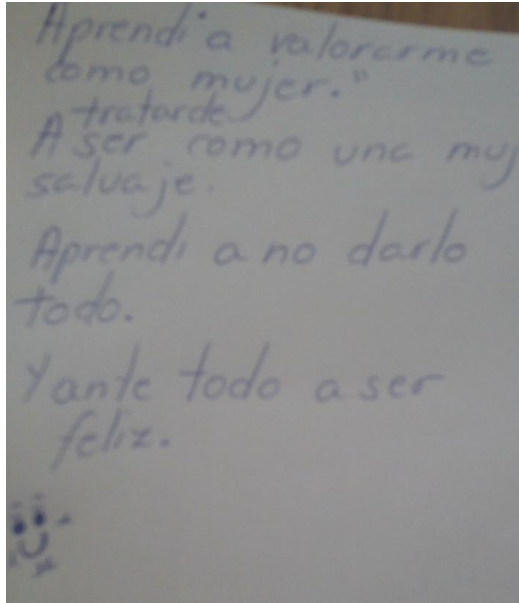 Aprendi a valorarme
como mujer."
tratarde
A ser como una muj
salvaje.
Aprendi a no darlo
todo.
Y ante todo a ser
feliz.